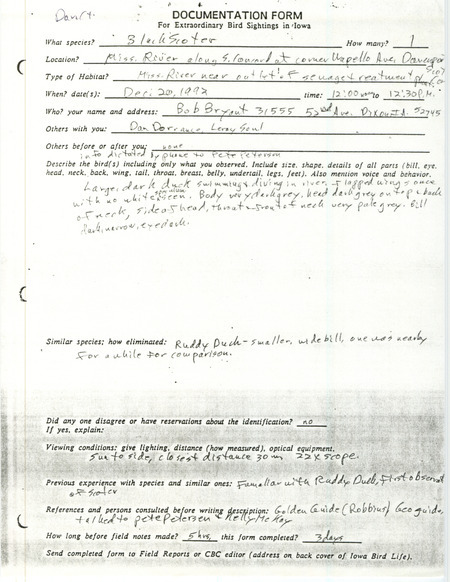 DOCUMENTATION FORM
For Extraordinary Bird Sightings in Iowa
What species? Black Scoter How many? 1
Location? Miss. River along S. Concord at corner Wapello Ave, Davenport
Scott Co.
Type of Habitat? Miss. River near outlet of sewage treatment plant
When? date(s): Dec. 20, 1992 time: 12:00 to 12:30 P.M.
Who? your name and address: Bob Bryant 31555 52nd Ave. Dixon IA. 52745
Others with you: Dan Dorrance, Leroy Soul
Others before or after you: none
info dictated by phone to Pete Petersen
Describe the bird(s) including only what you observed. Include size, shape, details of all parts (bill, eye,
head, neck, back, wing, tail, throat, breast, belly, undertail, legs, feet). Also mention voice and behavior.
Large, dark duck swimming & diving in river. Flapped wings once
with no white seen. Body very dark grey, head dark grey on top & back
of neck, side of head, throat & front of neck very pale grey. Bill
dark, narrow, eye dark.
Similar species; how eliminated: Ruddy Duck - smaller, wide bill, one was nearby
for a while for comparison.
Did any one disagree or have reservations about the identification? no
If yes, explain:
Viewing conditions: give lighting, distance (how measured), optical equipment.
Sun to side, closest distance 30 m 22x scope.
Previous experience with species and similar ones: Familiar with Ruddy Duck, First observation
of scoter
References and persons consulted before writing description: Golden Guide (Robbins) Geo guide,
talked to Pete Petersen & Kelly McKay
How long before field notes made? 5 hrs. this form completed? 3 days
Send completed form to Field Reports or CBC editor (address on back cover of Iowa Bird Life).